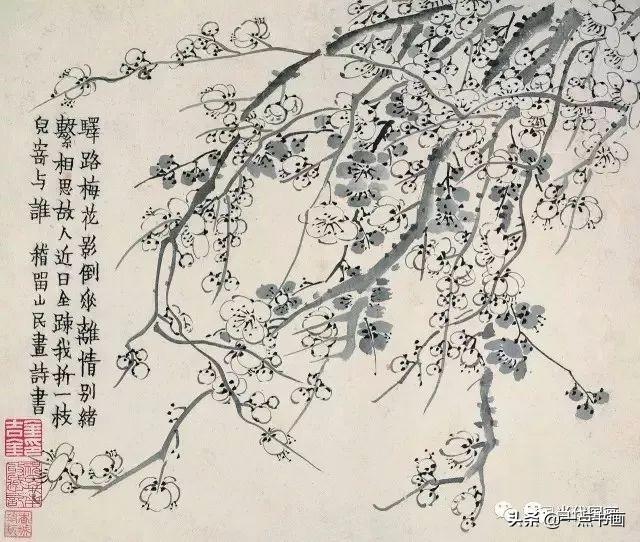 驛路梅花影倒垂離情别緒
繫相思故人近日全踈我折一枝
兒寄与誰 稽留山民畫詩書
头条 @一点书画